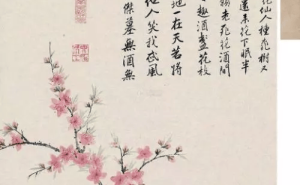 花仙人種桃樹又
還來花下眠半
老死花酒間
趣酒盞花枝
地在天若將
他人笑我忒風
傑墓無酒無